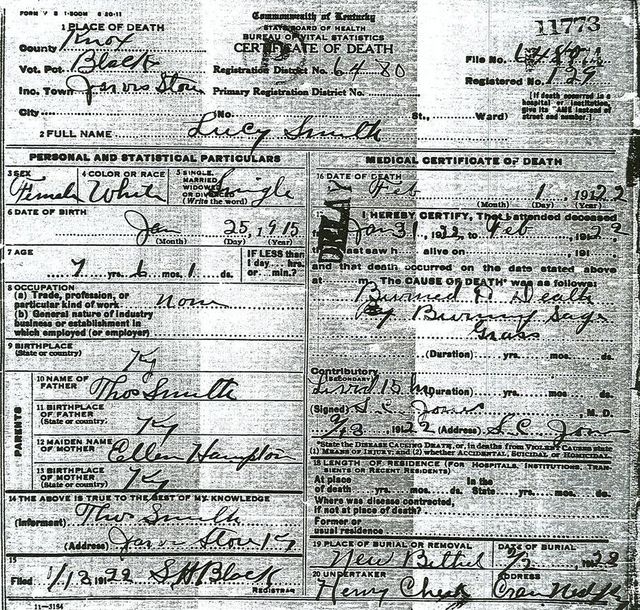 FORM V S 1-500M 6 20-11
Commonwealth of Kentucky
STATE BOARD OF HEALTH
BUREAU OF VITAL STATISTICS
CERTIFICATE OF DEATH
11773
1 PLACE OF DEATH
County Knox
Vot. Pct. Black
Registration District No. 6480
File No.
Registered No. 129
Inc. Town Jarvis Store Primary Registration District No.
City (No. St., Ward)
[If death occurred in a hospital or institution, give its NAME instead of street and number.]
2 FULL NAME Lucy Smith
PERSONAL AND STATISTICAL PARTICULARS
3 SEX Female
4 COLOR OR RACE White
5 SINGLE, MARRIED, WIDOWED OR DIVORCED (Write the word) Single
6 DATE OF BIRTH
Jan 25, 1915
(Month) (Day) (Year)
7 AGE
7 yrs. 6 mos. 1 ds.
IF LESS than 1 day hrs. or min.?
8 OCCUPATION
(a) Trade, profession, or particular kind of work. None
(b) General nature of industry
business or establishment in
which employed (or employer)
9 BIRTHPLACE
(State or country) Ky
PARENTS
10 NAME OF FATHER Thos Smith
11 BIRTHPLACE OF FATHER
(State or country) Ky
12 MAIDEN NAME OF MOTHER Ellen Hampton
13 BIRTHPLACE OF MOTHER
(State or country) Ky
14 THE ABOVE IS TRUE TO THE BEST OF MY KNOWLEDGE
(Informant) Thos Smith
(Address) Jarvis Store Ky
15
Filed 1/12, 1922 S H Black
REGISTRAR
11-3184
MEDICAL CERTIFICATE OF DEATH
16 DATE OF DEATH
Feb 1, 1922
(Month) (Day) (Year)
DELAY
17 I HEREBY CERTIFY, That I attended deceased
Jan 31, 1922 to Feb 1922
last saw h alive on , 191
and that death occurred on the date stated above
at m. The CAUSE OF DEATH* was as follows:
Burned to Death
By Burning Sage
Grass
(Duration) yrs. mos. ds.
Contributory
(SECONDARY)
Lived 15 h (Duration) yrs. mos. ds.
(Signed) S. C. Jones, M. D.
1922 (Address) S. C. Jones
*State the DISEASE CAUSING DEATH, or, in deaths from VIOLENT CAUSES state
(1) MEANS OF INJURY; and (2) whether ACCIDENTAL, SUICIDAL or HOMICIDAL
18 LENGTH OF RESIDENCE (FOR HOSPITALS, INSTITUTIONS, TRANSIENTS OR RECENT RESIDENTS)
At place of death yrs. mos. ds. In the State yrs. mos. ds.
Where was disease contracted,
if not at place of death?
Former or usual residence
19 PLACE OF BURIAL OR REMOVAL New Bethel
DATE OF BURIAL 2/2, 1922
20 UNDERTAKER Henry
ADDRESS